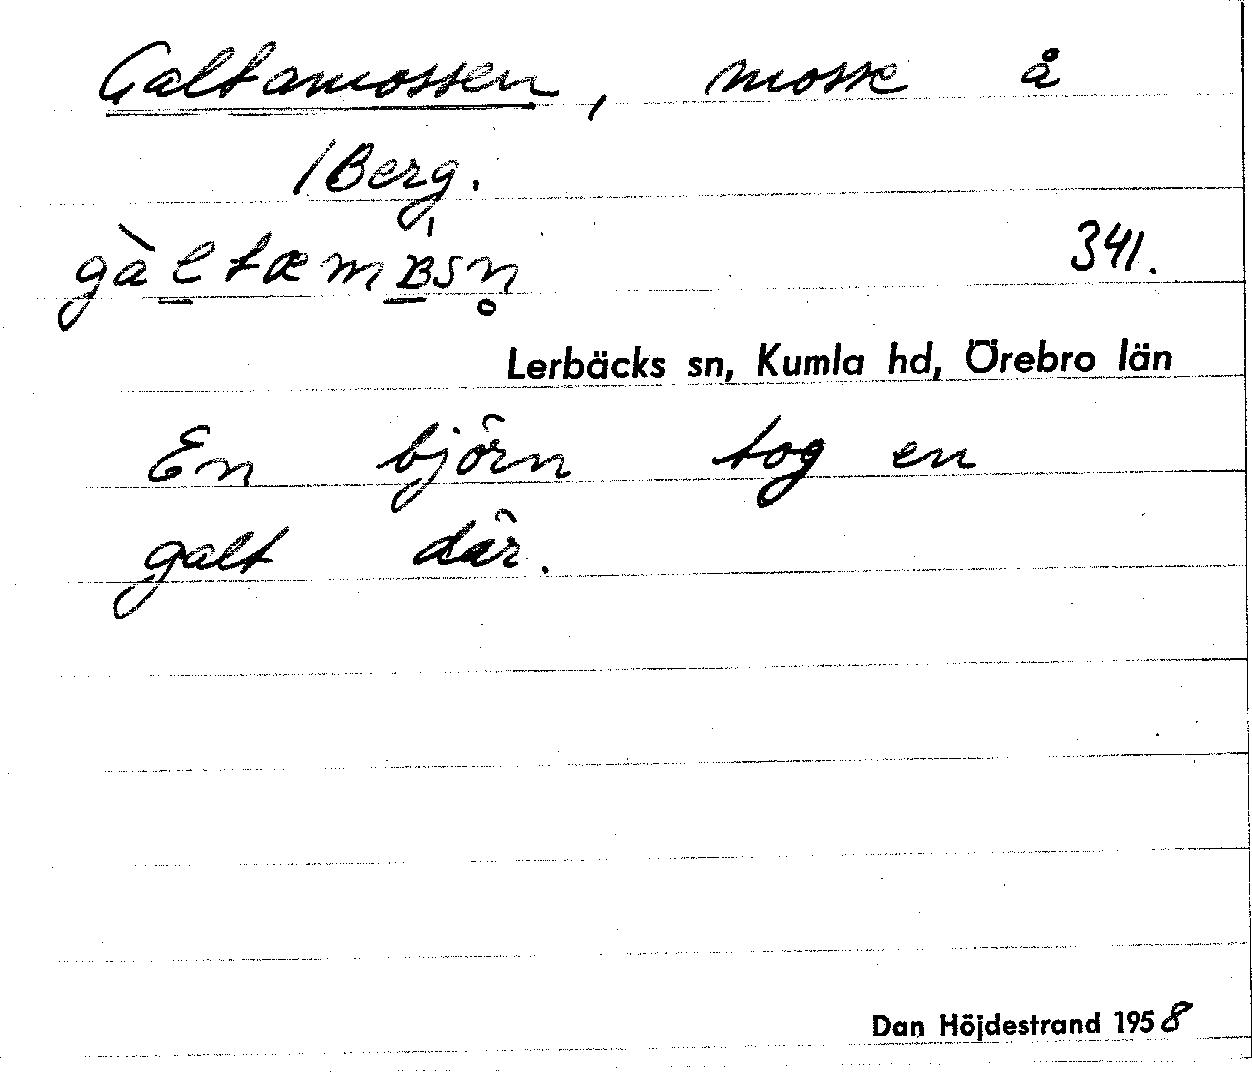 Galtamossen, mosse å
/Berg.
gàltæmʙsn̥
341.
Lerbäcks sn, Kumla hd, Örebro län
En björn tog en
galt där.
Dan Höjdestrand 1958